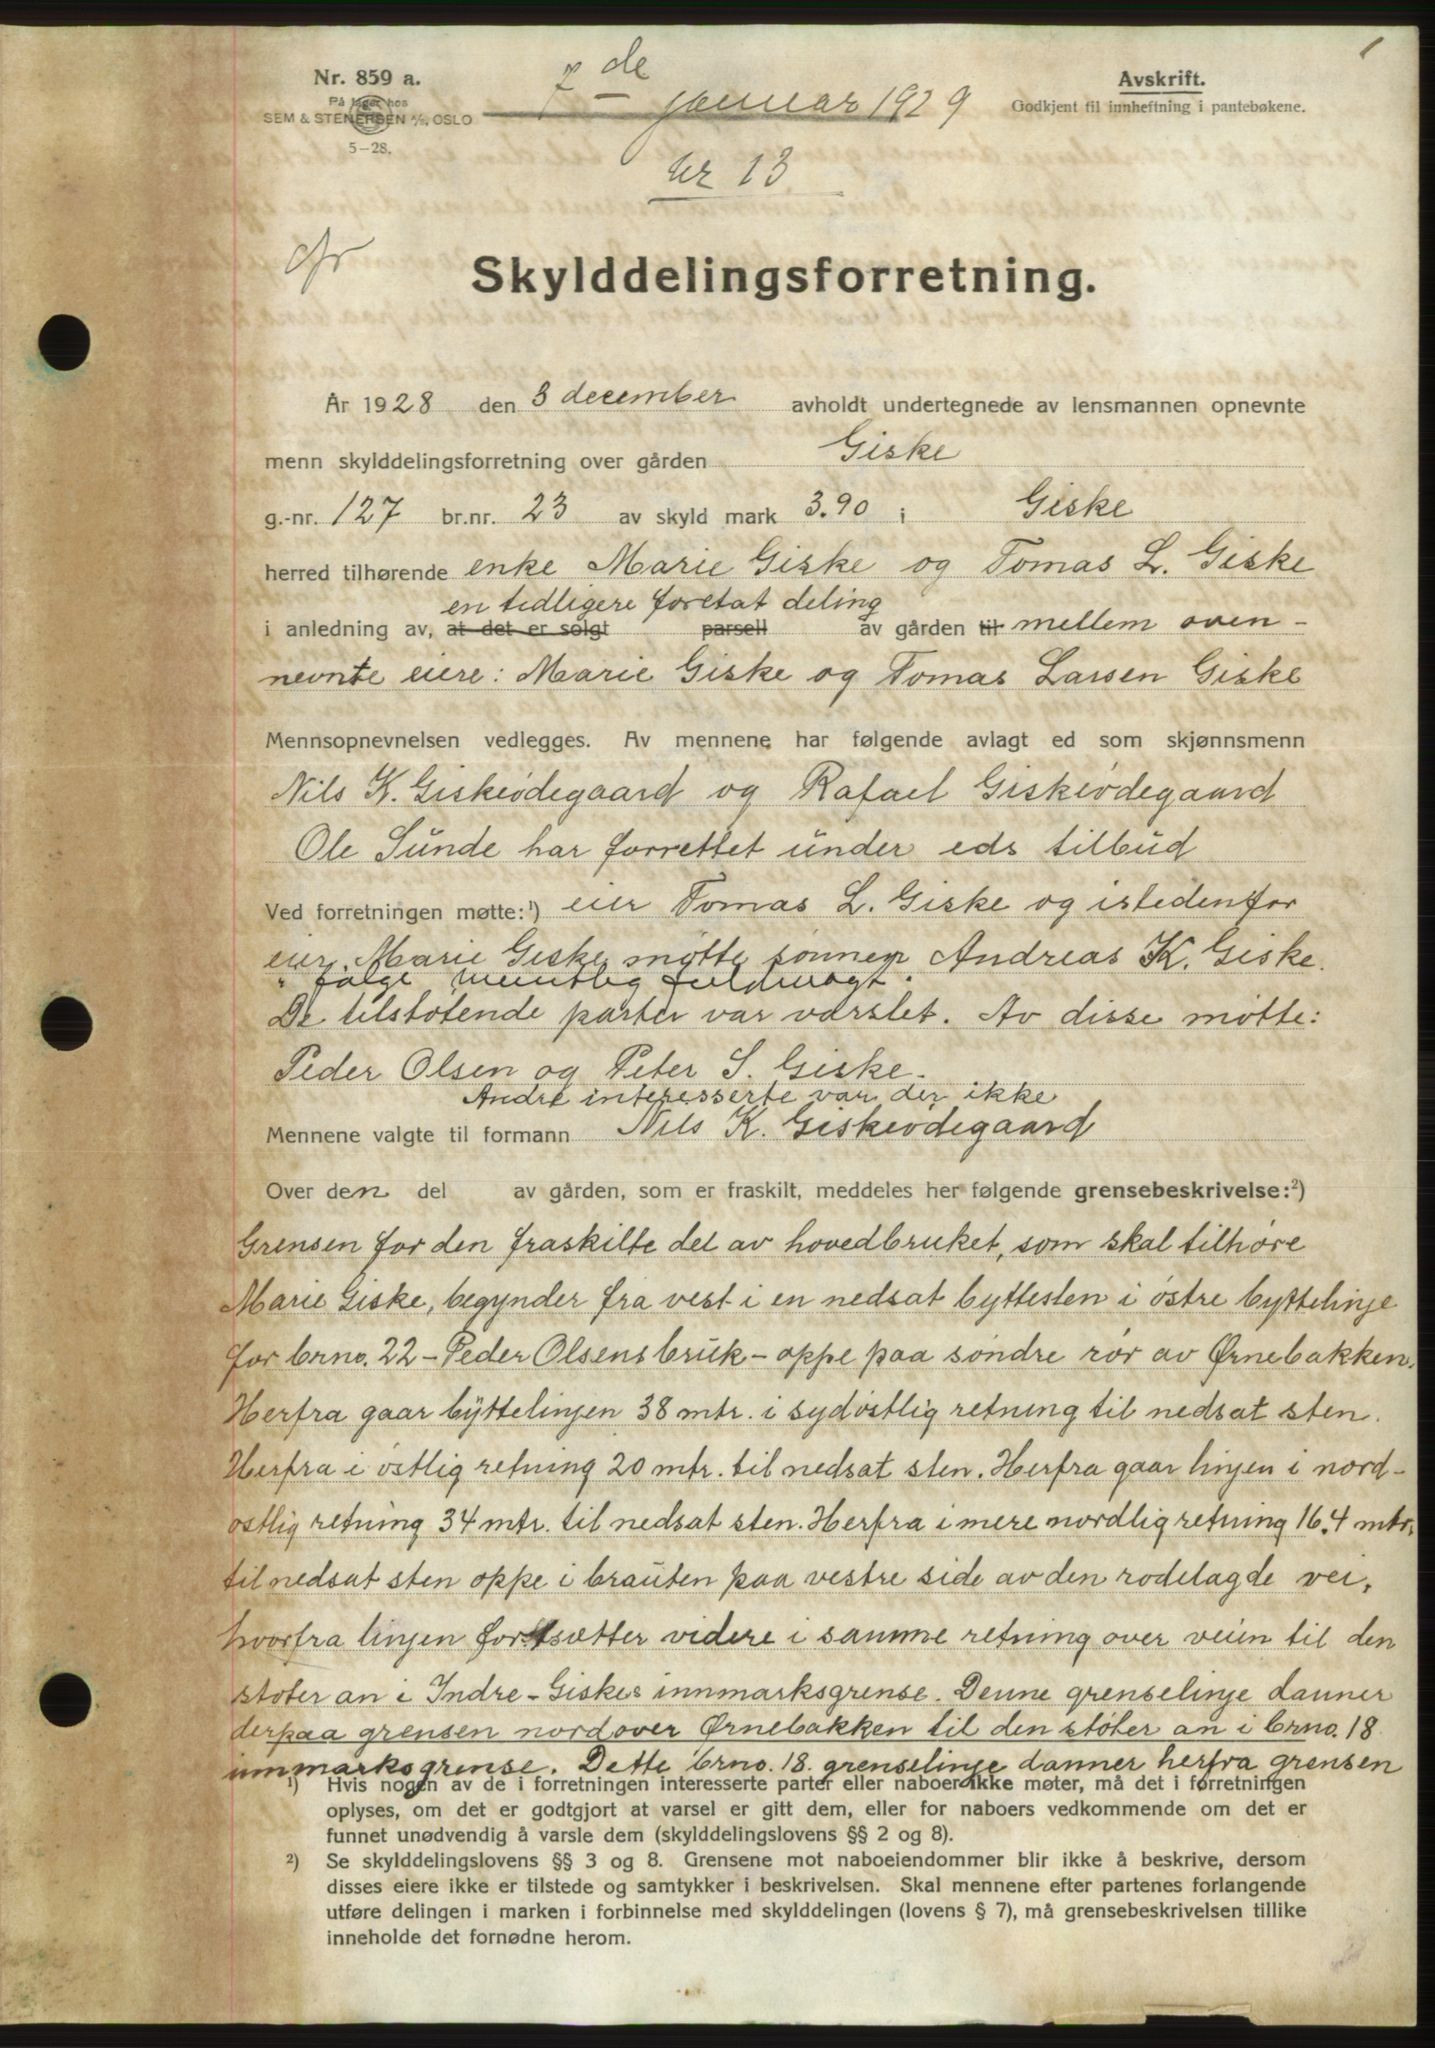 1
Nr. 859 a.
På lager hos
SEM & STENERSEN A/S, OSLO
5-28.
7de januar 1929
Avskrift.
Godkjent til innheftning i pantebøkene.
nr 13
cfr
Skylddelingsforretning.
År 1928 den 3 december avholdt undertegnede av lensmannen opnevnte
menn skylddelingsforretning over gården Giske
g.-nr. 127 br.nr. 23 av skyld mark 3.90 i Giske
herred tilhørende enke Marie Giske og Tomas L. Giske
en tidligere foretat deling
i anledning av, at det er solgt parsell av gården til mellem oven-
nevnte eiere: Marie Giske og Tomas Larsen Giske
Mennsopnevnelsen vedlegges. Av mennene har følgende avlagt ed som skjønnsmenn
Nils K. Giskeødegaard og Rafael Giskeødegaard
Ole Sunde har forrettet under eds tilbud
Ved forretningen møtte:¹) eier Tomas L. Giske og istedenfor
eier Marie Giske møtte sønnen Andreas K. Giske.
i følge muntlig fuldmagt.
De tilstøtende parter var varslet. Av disse møtte:
Peder Olsen og Peter S. Giske.
Andre interesserte var der ikke
Mennene valgte til formann Nils K. Giskeødegaard
Over den del av gården, som er fraskilt, meddeles her følgende grensebeskrivelse:²)
Grensen for den fraskilte del av hovedbruket, som skal tilhøre
Marie Giske, begynder fra vest i en nedsat byttesten i østre byttelinje
for brno. 22 - Peder Olsens bruk - oppe paa søndre rør av Ørnebakken.
Herfra gaar byttelinjen 38 mtr. i sydøstlig retning til nedsat sten.
Herfra i østlig retning 20 mtr. til nedsat sten. Herfra gaar linjen i nord-
østlig retning 34 mtr. til nedsat sten. Herfra i mere nordlig retning 16.4 mtr.
til nedsat sten oppe i brauten paa vestre side av den rodelagde vei,
hvorfra linjen fortsætter videre i samme retning over veien til den
støter an i Indre-Giskes innmarksgrense. Denne grenselinje danner
derpaa grensen nordover Ørnebakken til den støter an i brno. 18
innmarksgrense. Dette brno. 18. grenselinje danner herfra grensen
¹) Hvis nogen av de i forretningen interesserte parter eller naboer ikke møter, må det i forretningen
oplyses, om det er godtgjort at varsel er gitt dem, eller for naboers vedkommende om det er
funnet unødvendig å varsle dem (skylddelingslovens §§ 2 og 8).
²) Se skylddelingslovens §§ 3 og 8. Grensene mot naboeiendommer blir ikke å beskrive, dersom
disses eiere ikke er tilstede og samtykker i beskrivelsen. Skal mennene efter partenes forlangende
utføre delingen i marken i forbinnelse med skylddelingen (lovens § 7), må grensebeskrivelsen tillike
inneholde det fornødne herom.